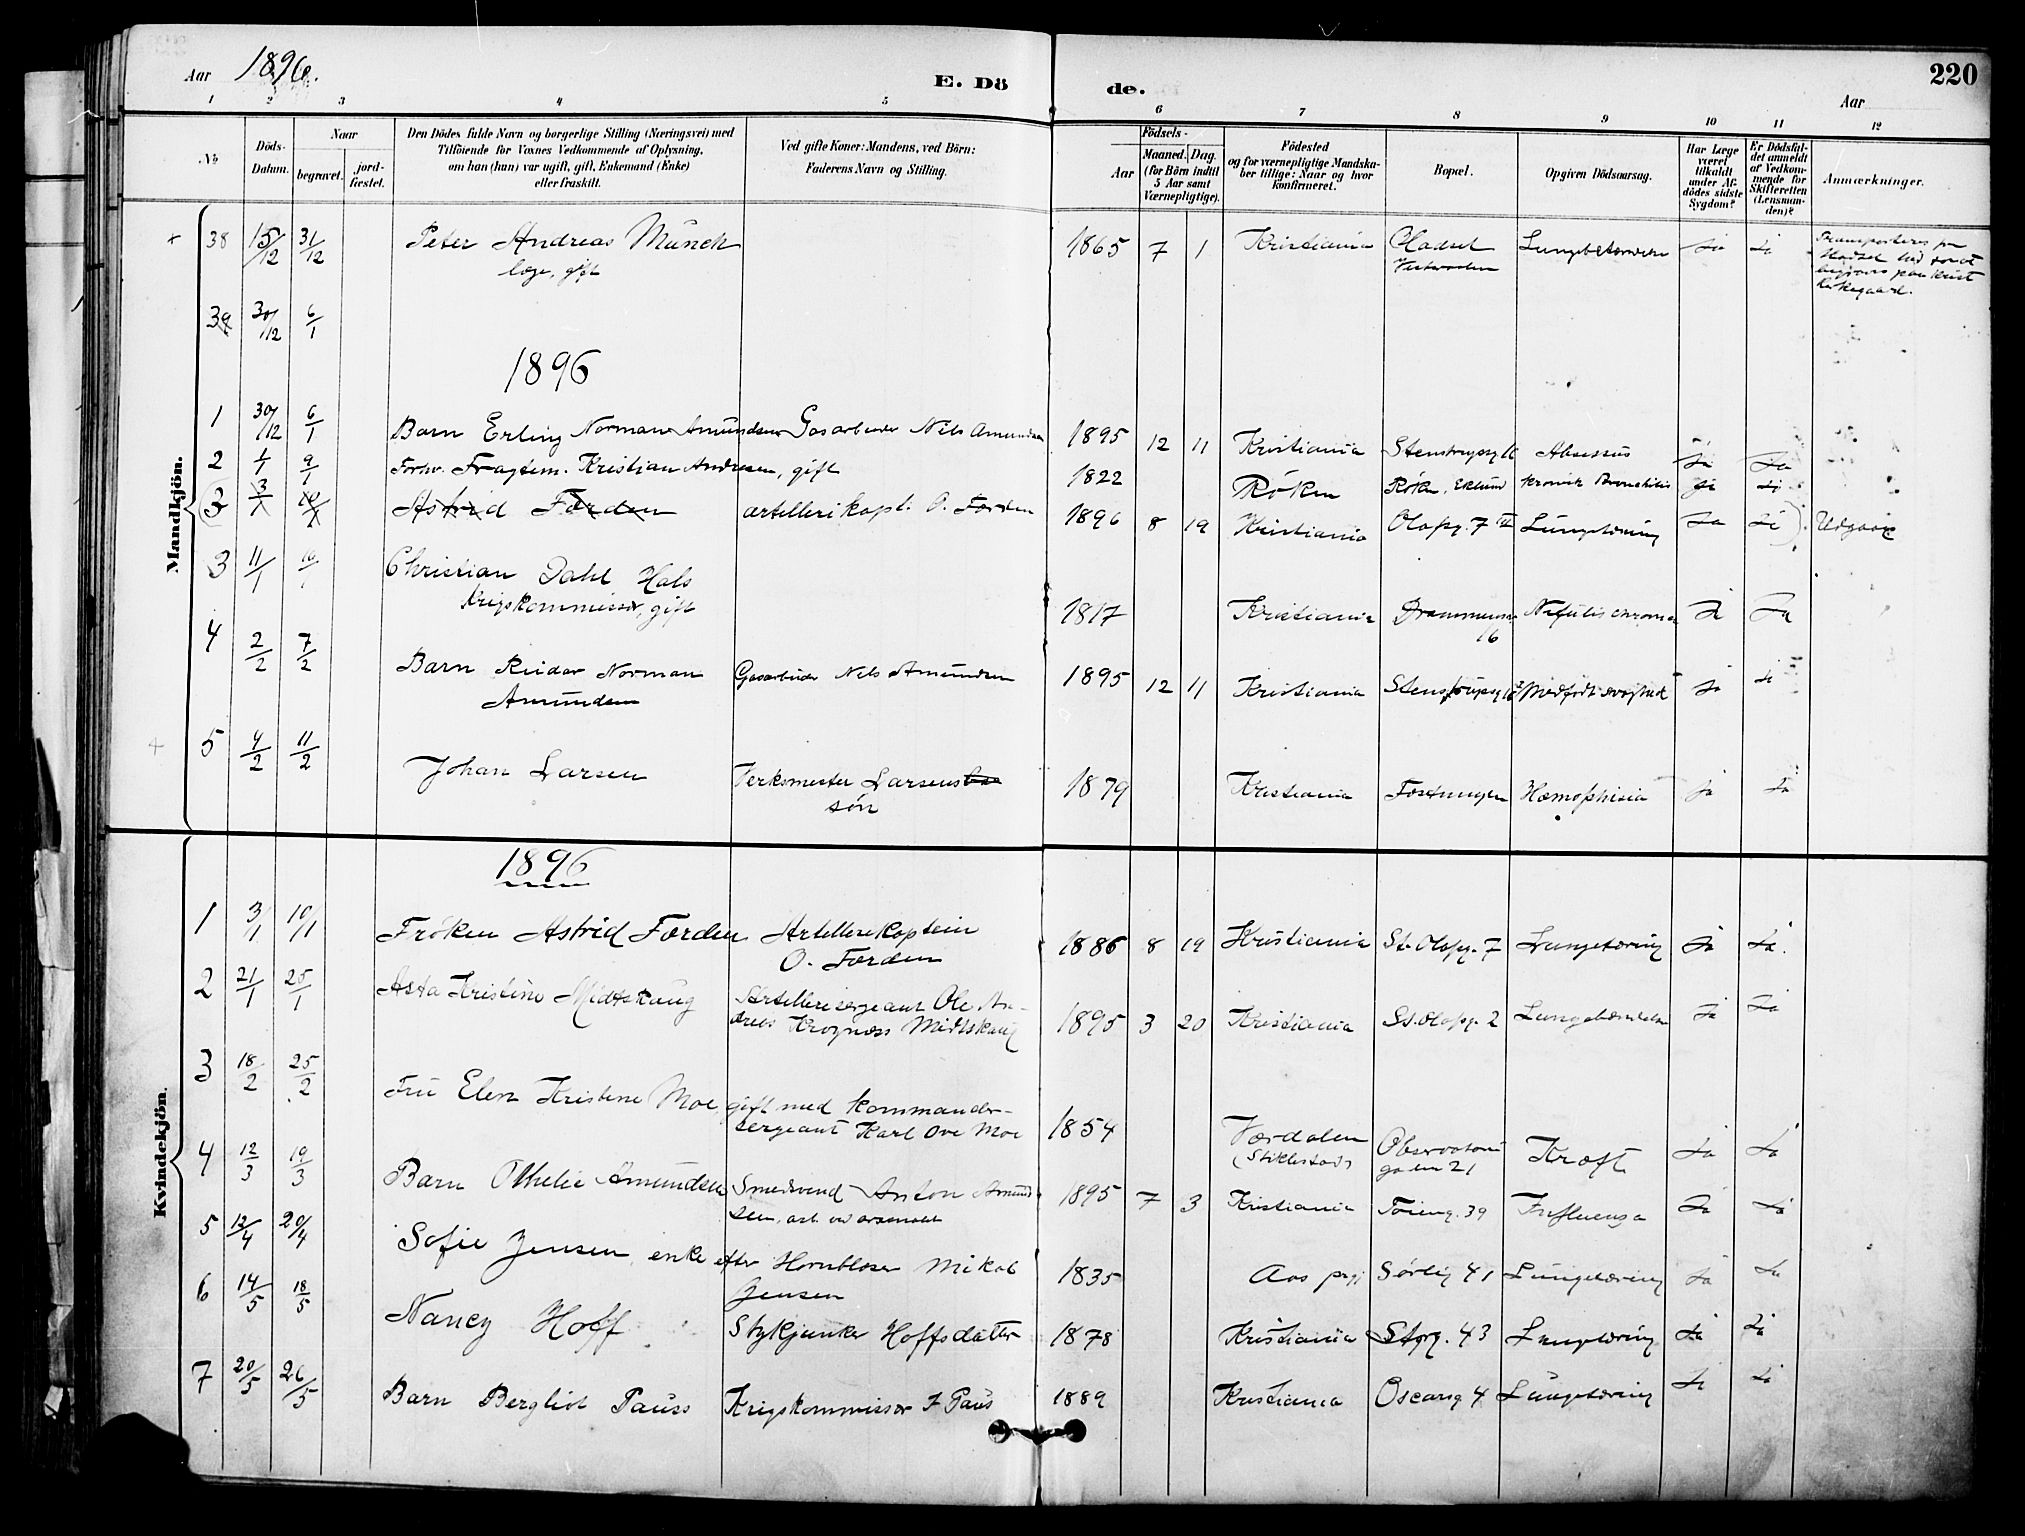 Aar 1896. E. Dö de. Aar 220
1 2 3 4 5 6 7 8 9 10 11 12
No Döds-Datum. Naar begravet. jord-fæstet.
Den Dödes fulde Navn og borgerlige Stilling (Næringsvei) med
Tilföiende for Voxnes Vedkommende af Oplysning,
om han (hun) var ugift, gift, Enkemand (Enke)
eller fraskilt.
Ved gifte Koner: Mandens, ved Börn:
Faderens Navn og Stilling.
Födsels-
Aar Maaned. Dag.
(for Börn indtil
5 Aar samt
Værnepligtige).
Födested
og for værnepligtige Mandska-
ber tillige: Naar og hvor
konfirmeret.
Bopæl.
Opgiven Dödsaarsag.
Har Læge
været
tilkaldt
under Af-
dödes sidste
Sygdom?
Er Dödsfal-
det anmeldt
af Vedkom-
mende for
Skifteretten
(Lensman-
den)?
Anmærkninger.
Mandkjön.
38 15/12 31/12 Peter Andreas Munch 1865 7 1 Kristiania Hadsel Ja Ja
læge, gift
39 30/12 6/1
1896
1 30/12 6/1 Barn Erling Norman Amundsen Gasarbeider Nils Amundsen 1895 12 11 Kristiania Abscessus Ja Ja
2 9/1 Forhv. Fragtem. Kristian Andresen, gift 1822 Röken Röken kronisk Bronchitis Ja Ja
(3 3/1 10/1 Astrid Færden artillerikapt. O. Færden 1896 8 19 Kristiania Olafsg. 7 Lungetæring Ja Ja) Udgaar
3 11/1 Christian Dahl Hals
Krigskommissær, gift 1817 Kristiania 16 Ja Ja
4 2/2 7/2 Barn Reidar Norman Gasarbeider Nils Amundsen 1895 12 11 Kristiania Medfødt svaghed Ja Ja
Amundsen
5 4/2 11/2 Johan Larsen Verksmester Larsens
søn 1879 Kristiania Fæstningen Ja Ja
Kvindekjön.
1896
1 3/1 10/1 Fröken Astrid Færden Artillerikaptein
O. Færden 1886 8 19 Kristiania St. Olafsg. 7 Lungetæring Ja Ja.
2 21/1 25/1 Asta Kristine Midtskaug Artillerisergeant Ole An-
dreas Krognæss Midtskaug 1895 3 20 Kristiania St. Olafsg. 2 Ja Ja
3 18/2 25/2 Fru Elen Kristine Moe, gift med kommander-
sergeant Karl Ove Moe 1854 Værdalen
(Stiklestad) Observatorie
gaden 21 Kræft Ja Ja
4 12/3 19/3 Barn Othelie Amundsen Smedsvend Anton Amund-
sen, 1895 7 3 Kristiania Töieng. 39 Influensa Ja Ja
5 12/4 20/4 Sofie Jensen, enke efter Hornblæser Mikal
Jensen 1835 Aas Sörlig 41 Lungetæring Ja Ja
6 14/5 18/5 Nancy Hoff Stykjunker Hoffs datter 1878 Kristiania Storg. 43 Lungetæring Ja Ja
7 20/5 26/5 Barn Bergliot Pauss Krigskommissær J Paus 1889 Kristiania Oscarsg 4 Lungetæring Ja Ja